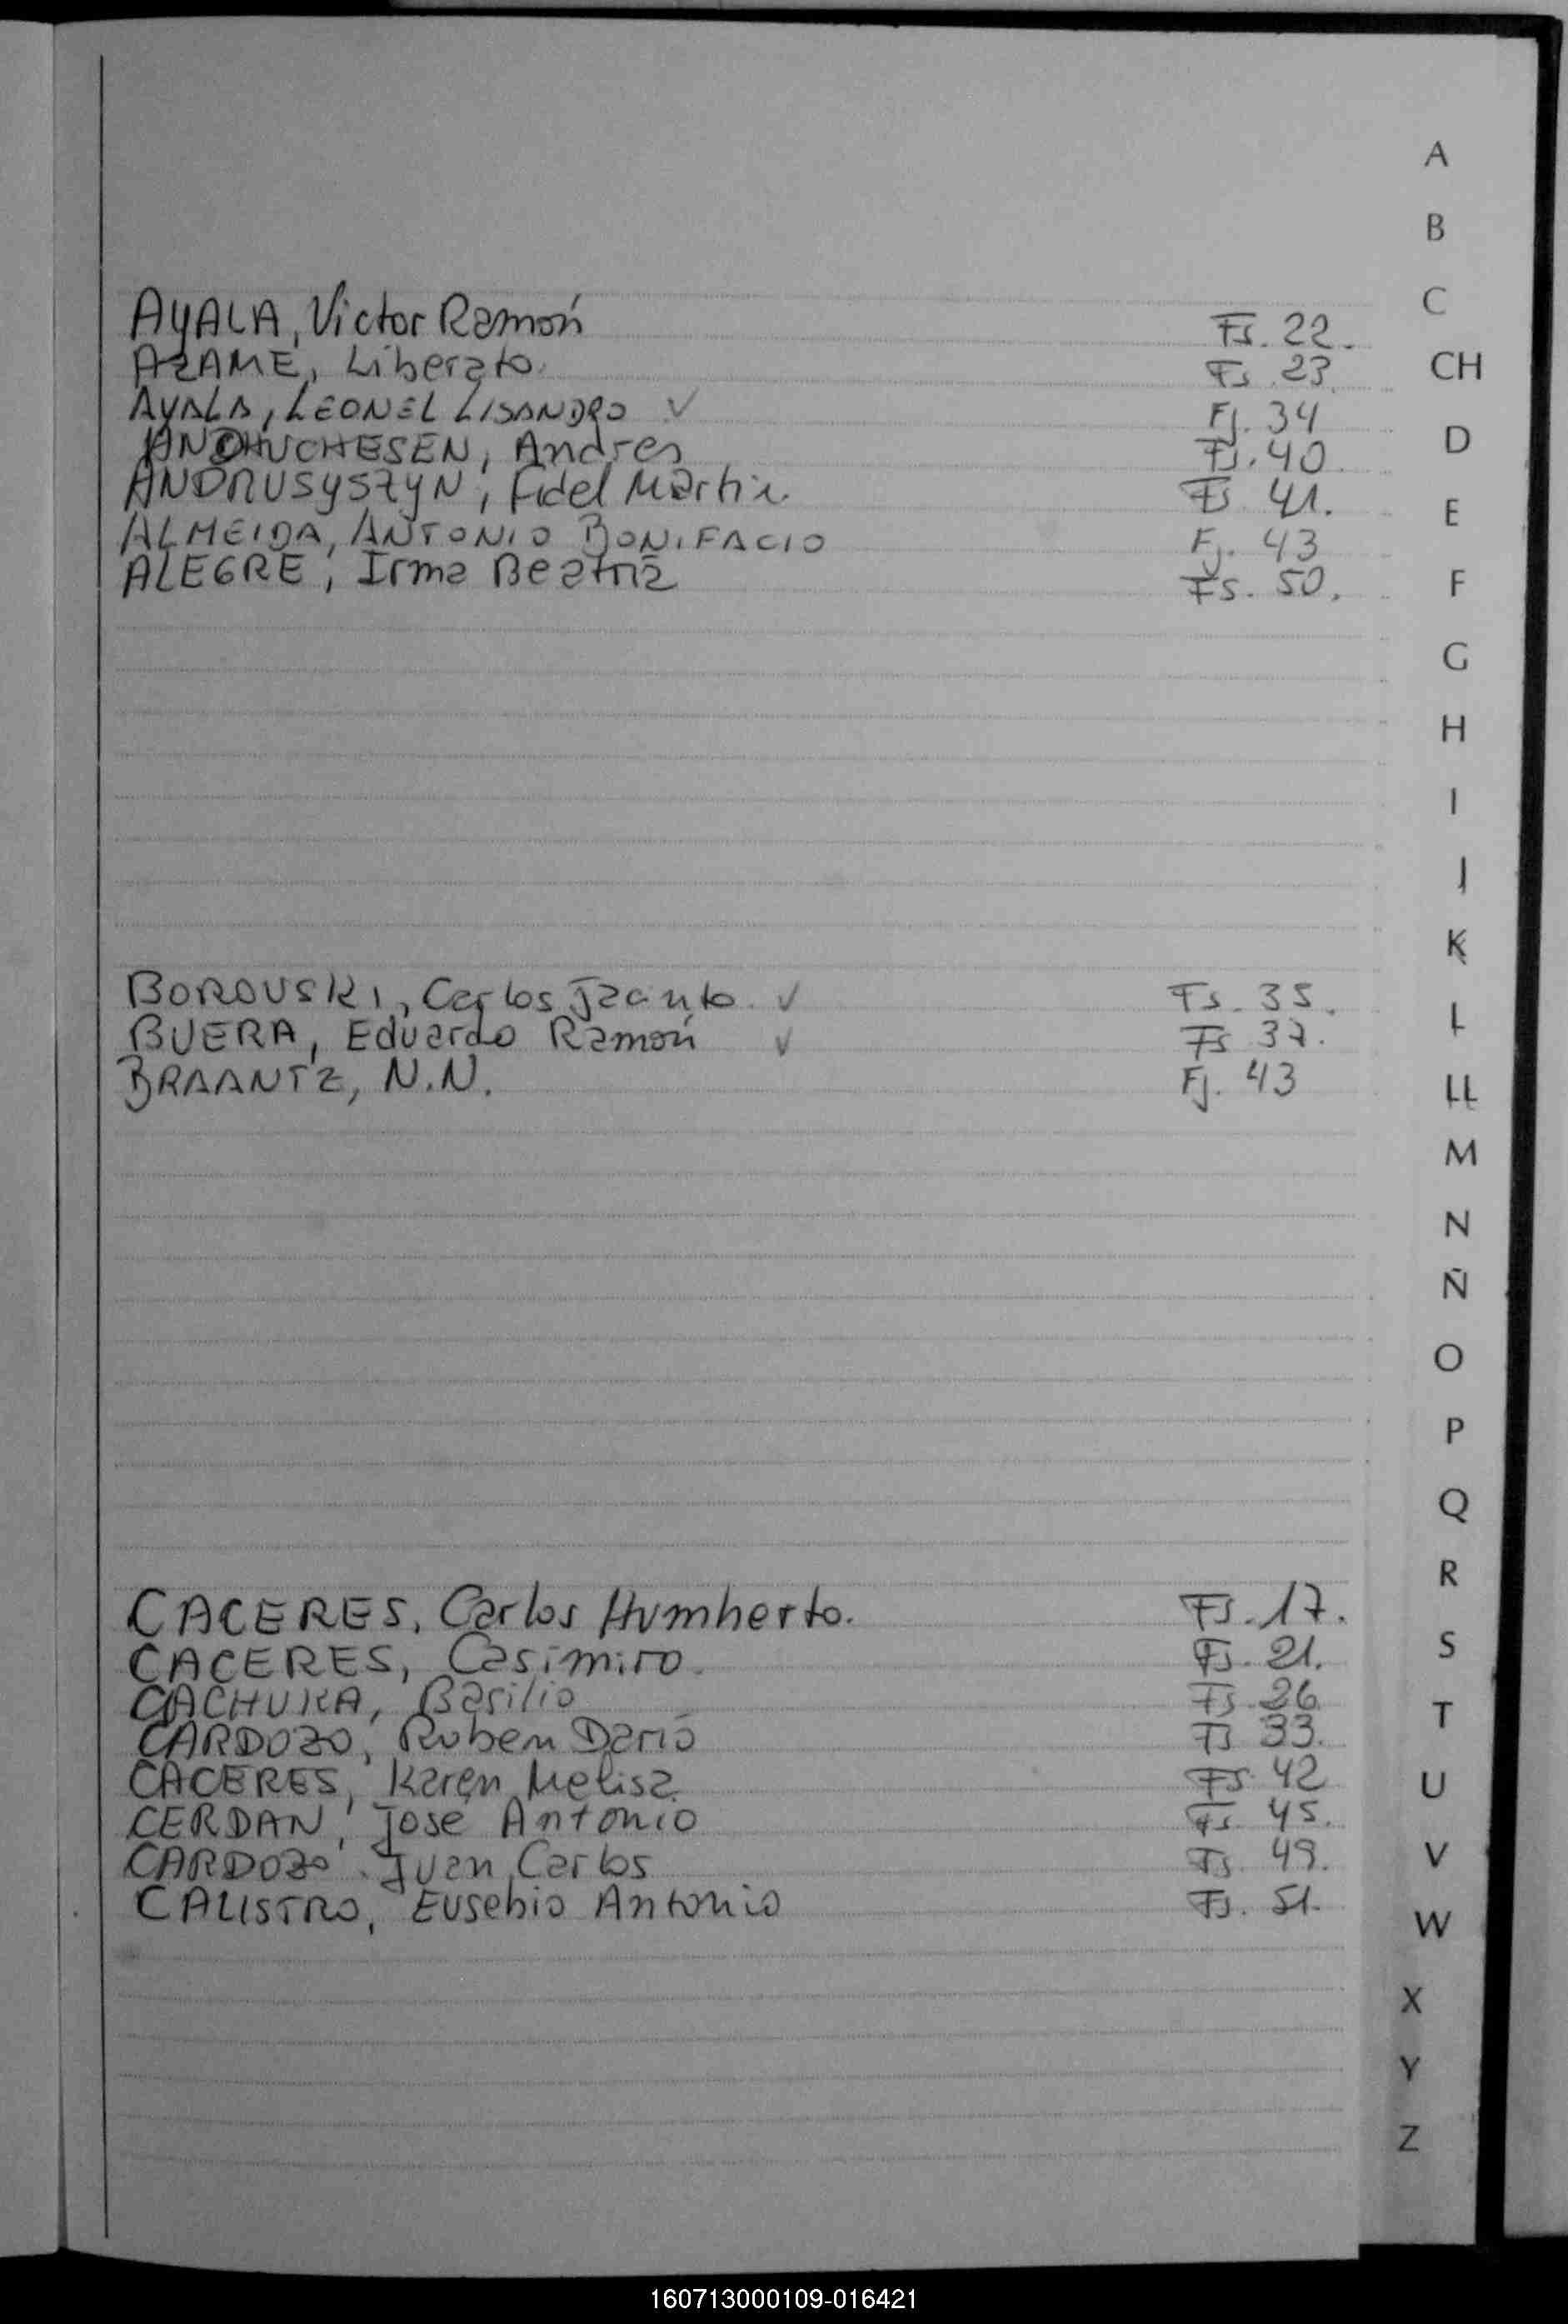 AYALA, Victor Ramón Fs. 22.
AZAME, Liberato. Fs. 23.
AYALA, LEONEL LISANDRO ✓ Fj. 34
Andres Fs. 40.
ANDRUSYSZYN, Fidel Martin. Fs. 41.
ALMEIDA, ANTONIO BONIFACIO Fj. 43
ALEGRE, Irma Beatriz Fs. 50.
BOROUSKI, Carlos Jacinto. ✓ Fs. 35.
BUERA, Eduardo Ramón ✓ Fs 37.
BRAANTZ, N.N. Fj. 43
CACERES, Carlos Humberto. Fs. 17.
CACERES, Casimiro. Fs. 21.
CACHUKA, Basilio Fs. 26
CARDOZO, Ruben Darío Fs 33.
CACERES, Karen Melisa. Fs. 42
CERDAN, Jose Antonio Fs. 45.
CARDOZO. Juan Carlos Fs. 49.
CALISTRO, Eusebio Antonio Fs. 51.
A
B
C
CH
D
E
F
G
H
I
J
K
L
LL
M
N
Ñ
O
P
Q
R
S
T
U
V
W
X
Y
Z
160713000109-016421